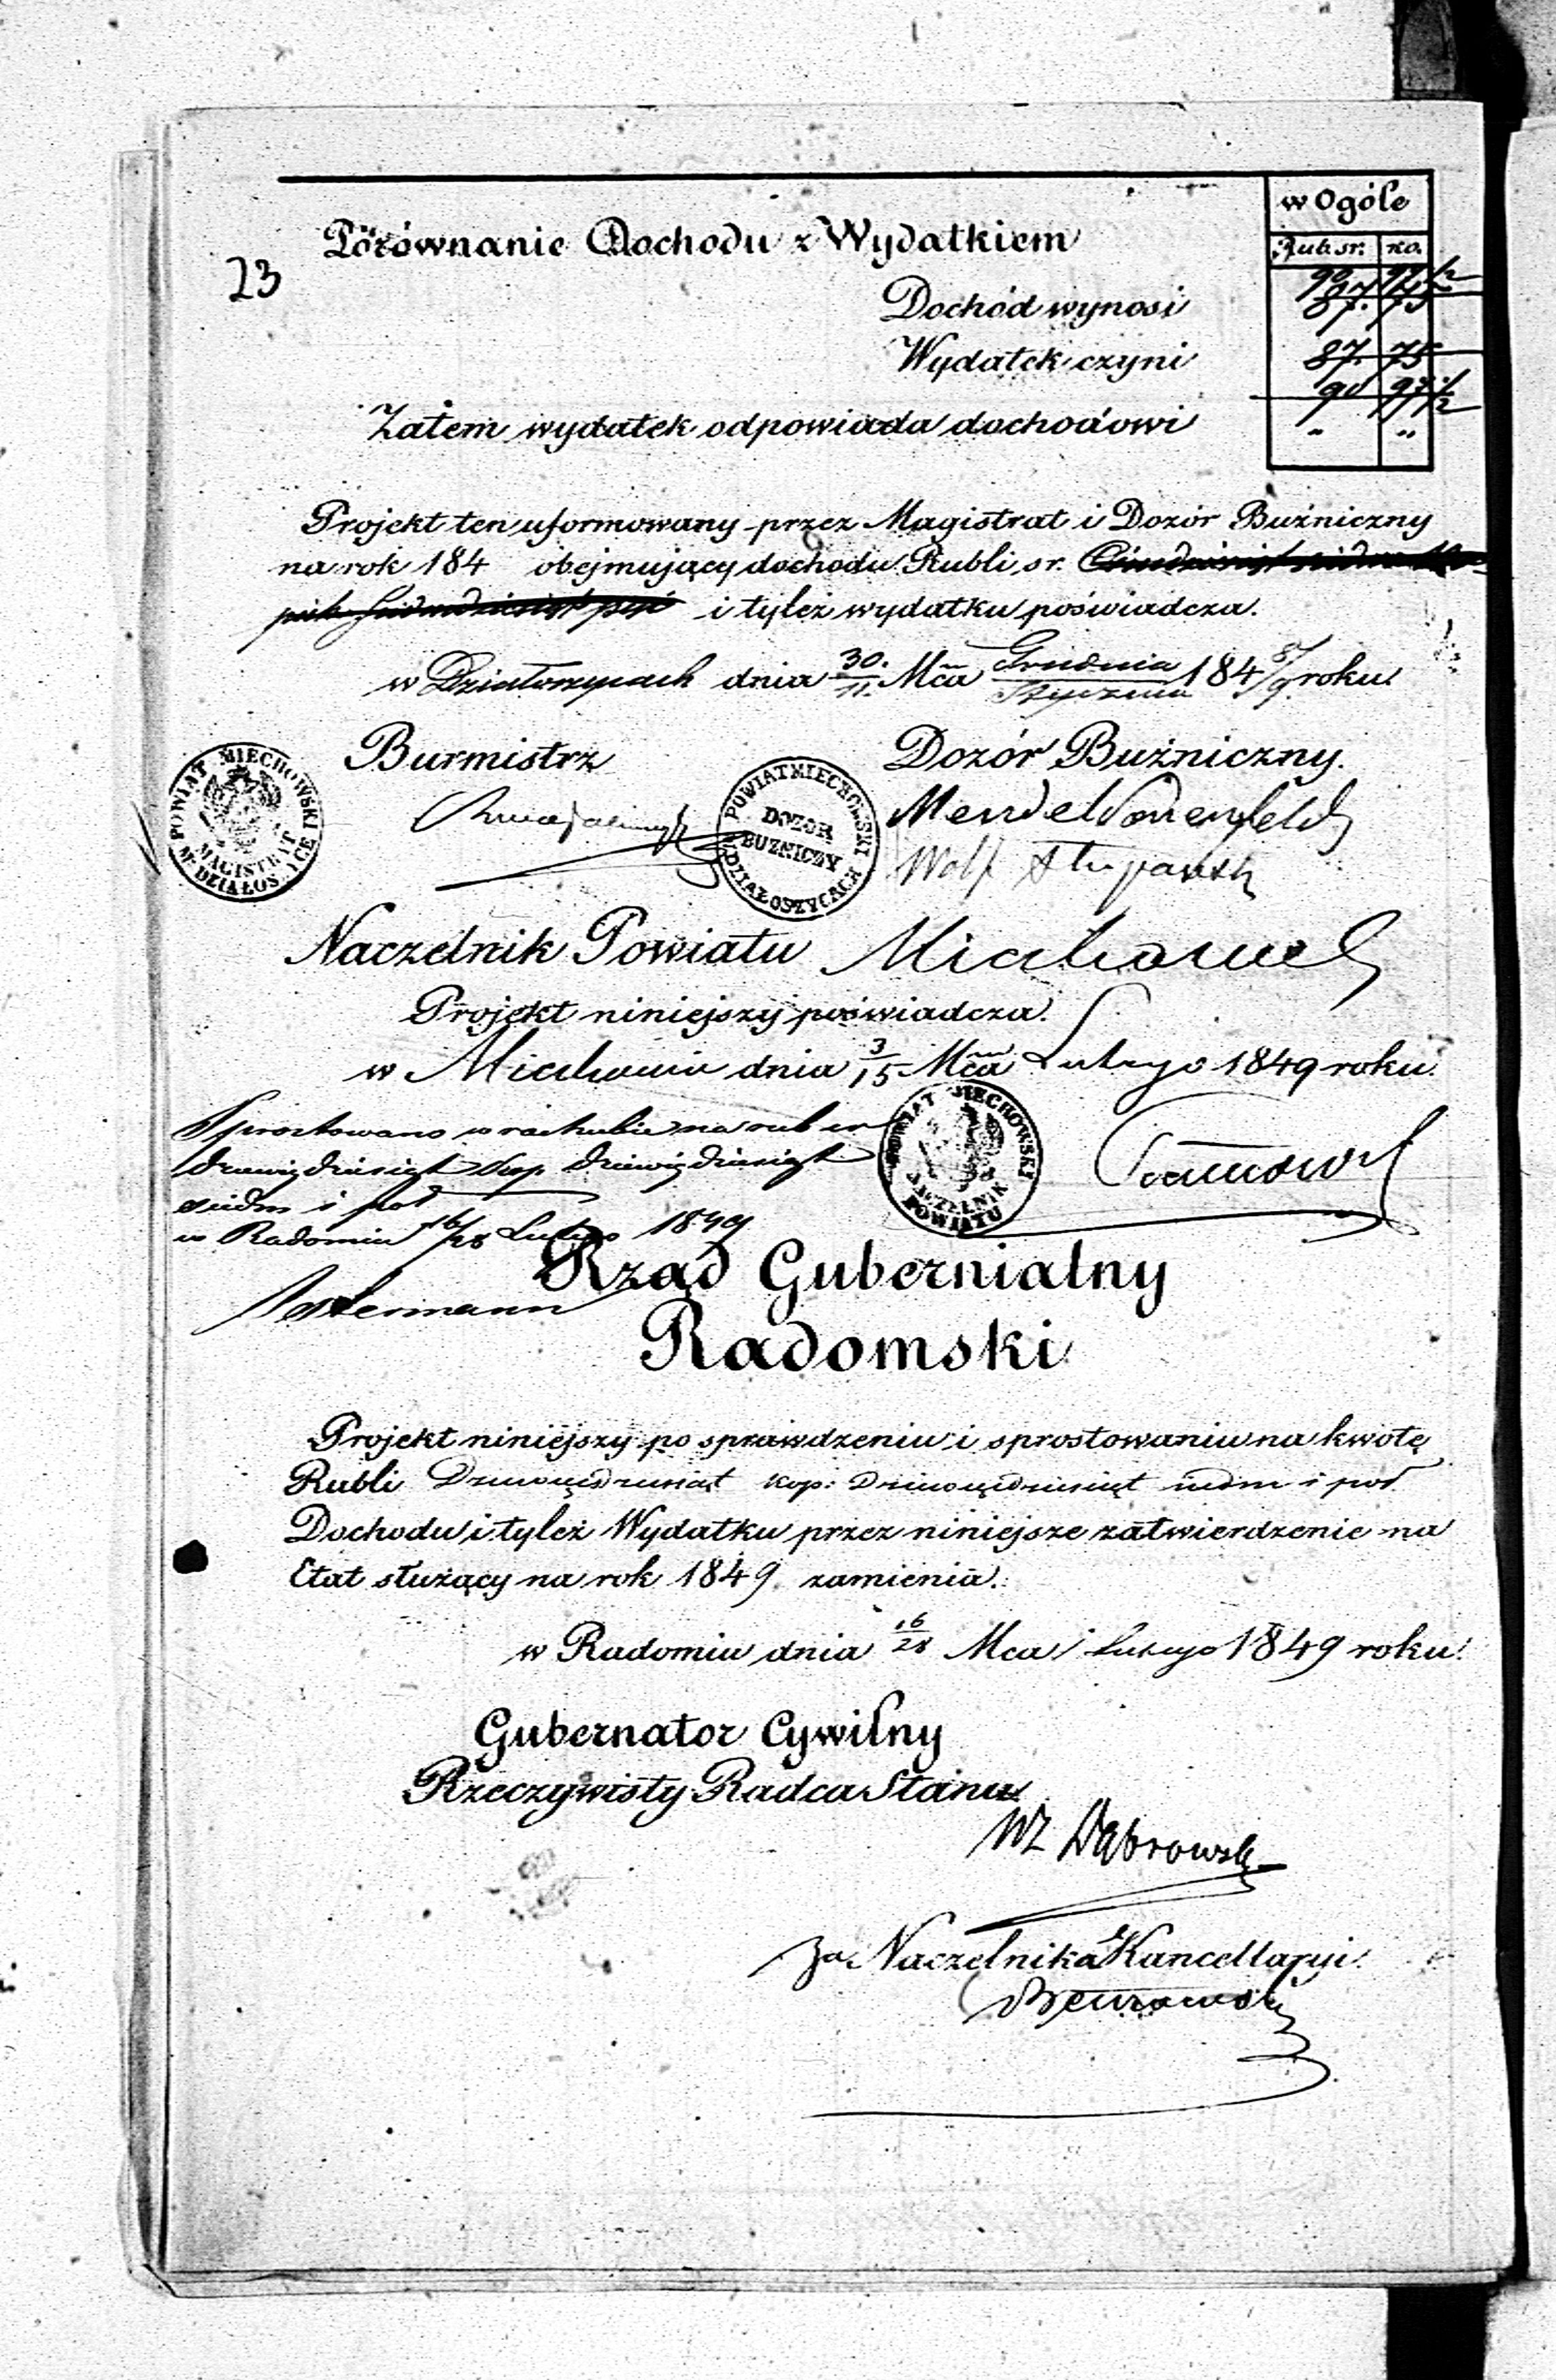 w Ogóle
Rub sr. ko.
Porównanie Dochodu z Wydatkiem
23
90 97 1/2
Dochód wynosi 87. 75
Wydatek czyni 87. 75
90 97 1/2
Zatem wydatek odpowiada dochodowi " "
Projekt ten uformowany przez Magistrat i Dozór Buźniczny
na rok 184 obejmujący dochodu Rubli sr.
i tyleż wydatku poświadcza.
w Działoszycach dnia 30./11. Mca Grudnia/Stycznia 184 8/9 roku.
Burmistrz Dozór Buźniczny.
POWIAT MIECHOWSKI
MAGISTRAT
M. DZIAŁOSZYCE
POWIAT MIECHOWSKI
DOZOR
BUZNICZY
DZIAŁOSZYCACH
Mendel
Wolf
Naczelnik Powiatu Miechowski
Projekt niniejszy poświadcza.
w Miechowie dnia 3/15 Mca Lutego 1849 roku.
Sprostowano w rachubie na rub sr
dziewięćdziesiąt kop. dziewięćdziesiąt
siedm i pół
w Radomiu 16/28 Lutego 1849
POWIAT MIECHOWSKI
NACZELNIK
POWIATU
Rząd Gubernialny
Radomski
Projekt niniejszy po sprawdzeniu i sprostowaniu na kwotę
Rubli Dziewięćdziesiąt kop: Dziewięćdziesiąt siedm i pół
Dochodu i tyleż Wydatku przez niniejsze zatwierdzenie na
Etat służący na rok 1849 zamienia.
w Radomiu dnia 16/28 Mca Lutego 1849 roku.
Gubernator Cywilny
Rzeczywisty Radca Stanu
WZ Dąbrowski
Za Naczelnika Kancellaryi